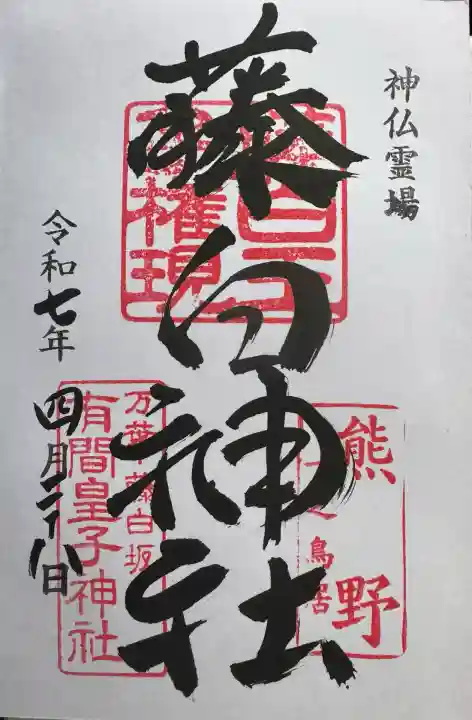 神仏霊場
藤白神社
熊野
鳥居
権現
万葉
藤白坂
有間皇子神社
令和七年
四月二十八日